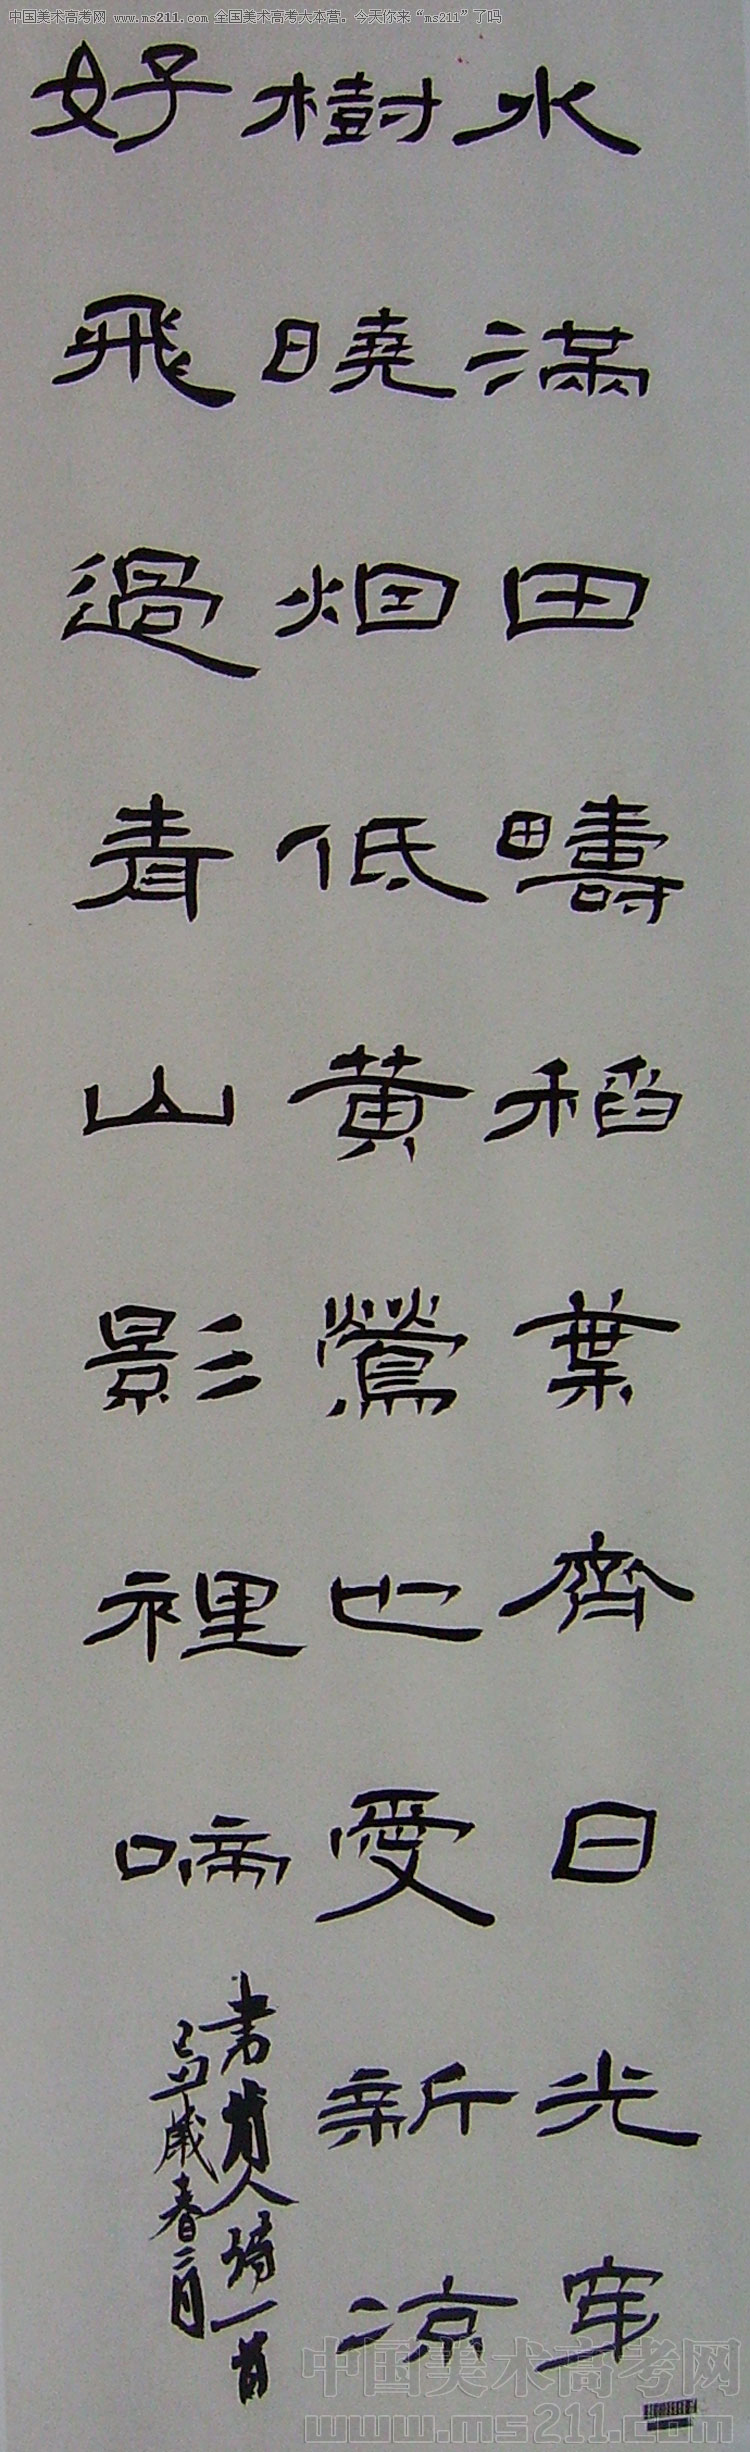 中国美术高考网 www.ms211.com 全国美术高考大本营。今天你来“ms211”了吗
水滿田疇稻葉齊日光穿
樹曉烟低黄鶯也愛新涼
好飛過青山影裡啼
書前人詩一首
己丑歲春二月
中国美术高考网
www.ms211.com